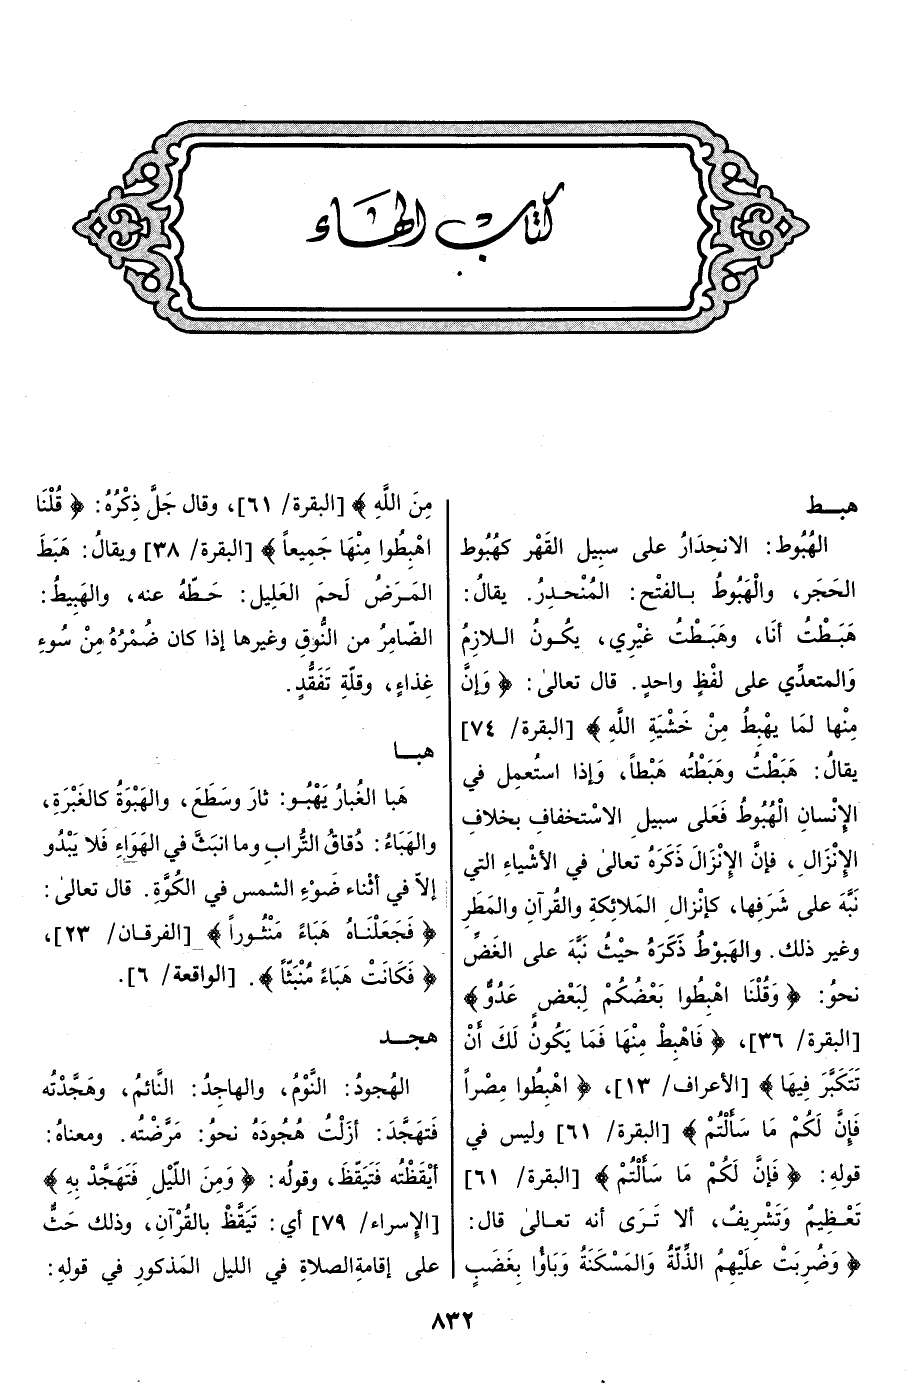 كتاب الهاء
هبـط
الهُبُوط: الانحِدَارُ على سبيل القَهْر كهُبُوط
الحَجَر، والْهَبُوطُ بـالفتْح: المُنْحـدِرُ. يقالُ:
هَبَـطْتُ أنَا، وهَبَـطْتُ غيْرِي، يكُـونُ الـلازِمُ
وَالمتعدِّي على لفْظٍ واحدٍ. قال تعالىٰ: ﴿ وَإنَّ
مِنْها لمَا يهْبِطُ مِنْ خَشْيَةِ اللَّهِ ﴾ [البقرة/ ٧٤]
يقالُ: هَبَطْتُ وهَبَطْته هَبْطاً، وَإذا استُعمِل في
الإنْسانِ الْهُبُوطُ فَعَلى سبيلِ الاسْتخفافِ بخلافِ
الإنْزالِ، فإنَّ الإنْزالَ ذَكَرَهُ تعالىٰ في الأشْياءِ التي
نَبَّهَ على شَرَفِها، كإنْزالِ المَلائِكةِ والقُرآنِ والمَطَرِ
وغير ذلك. والهَبوْطُ ذَكَرَهُ حيْثُ نَبَّهَ على الغَضِّ
نحوُ: ﴿ وَقُلْنَا اهْبِطُوا بَعْضُكُمْ لِبَعْضٍ عَدُوٌّ ﴾
[البقرة/ ٣٦]، ﴿ فَاهْبِطْ مِنْهَا فَمَا يَكُونُ لَكَ أَنْ
تَتَكَبَّرَ فِيهَا ﴾ [الأعراف/ ١٣]، ﴿ اهْبِطُوا مِصْراً
فَإِنَّ لَكُمْ مَا سَأَلْتُمْ ﴾ [البقرة/ ٦١] وليس في
قولهِ: ﴿ فَإنَّ لَكُمْ مَا سَأَلْتُمْ ﴾ [البقرة/ ٦١]
تَعْـظِيمٌ وَتَشْرِيفٌ، ألا تـرَى أنه تعـالىٰ قال:
﴿ وَضُرِبَتْ عَلَيْهِمُ الذِّلَّةُ وَالمَسْكَنَةُ وَبَاؤُا بِغَضَبٍ
مِنَ اللَّهِ ﴾ [البقرة/ ٦١]، وقال جَلَّ ذِكْرُهُ: ﴿ قُلْنَا
اهْبِطُوا مِنْهَا جَمِيعاً ﴾ [البقرة/ ٣٨] ويقالُ: هَبَطَ
المَـرَضُ لَحمَ العَلِيل: حَـطّهُ عنه، والهَبِيطُ:
الضّامِرُ من النُّوقِ وغيرها إذا كان ضُمْرُهُ مِنْ سُوءِ
غِذاءٍ، وقلّةِ تَفَقُّدٍ.
هبـا
هَبا الغُبارُ يَهْبُـو: ثارَ وسَطَعَ، والهَبْوَةُ كالغَبْرَةِ،
والهَبَاءُ: دُقاقُ التُّرابِ وما انبَثَّ في الهَوَاءِ فَلا يَبْدُو
إلاّ في أثْناء ضَوْءِ الشمس في الكُوَّةِ. قال تعالىٰ:
﴿ فَجَعَلْنَـاهُ هَبَاءً مَنْثُـوراً ﴾ [الفرقـان/ ٢٣]،
﴿ فَكَانَتْ هَبَاءً مُنْبَثّاً ﴾. [الواقعة/ ٦].
هجـد
الهُجودُ: النَّوْمُ، والهاجِدُ: النَّائمُ، وهَجَّدْتُه
فَتَهجَّدَ: أزَلْتُ هُجُودَهُ نحوُ: مَرَّضْته. ومعناهُ:
أيْقَظْتُه فَتَيَقّظَ، وقولُه: ﴿ وَمِنَ اللّيْلِ فَتَهَجَّدْ بِهِ ﴾
[الإسراء/ ٧٩] أي: تَيَقَّظْ بالقُرْآنِ، وذلك حَثٌّ
على إقامةِ الصلاةِ في الليل المَذكورِ في قولهِ:
٨٣٢